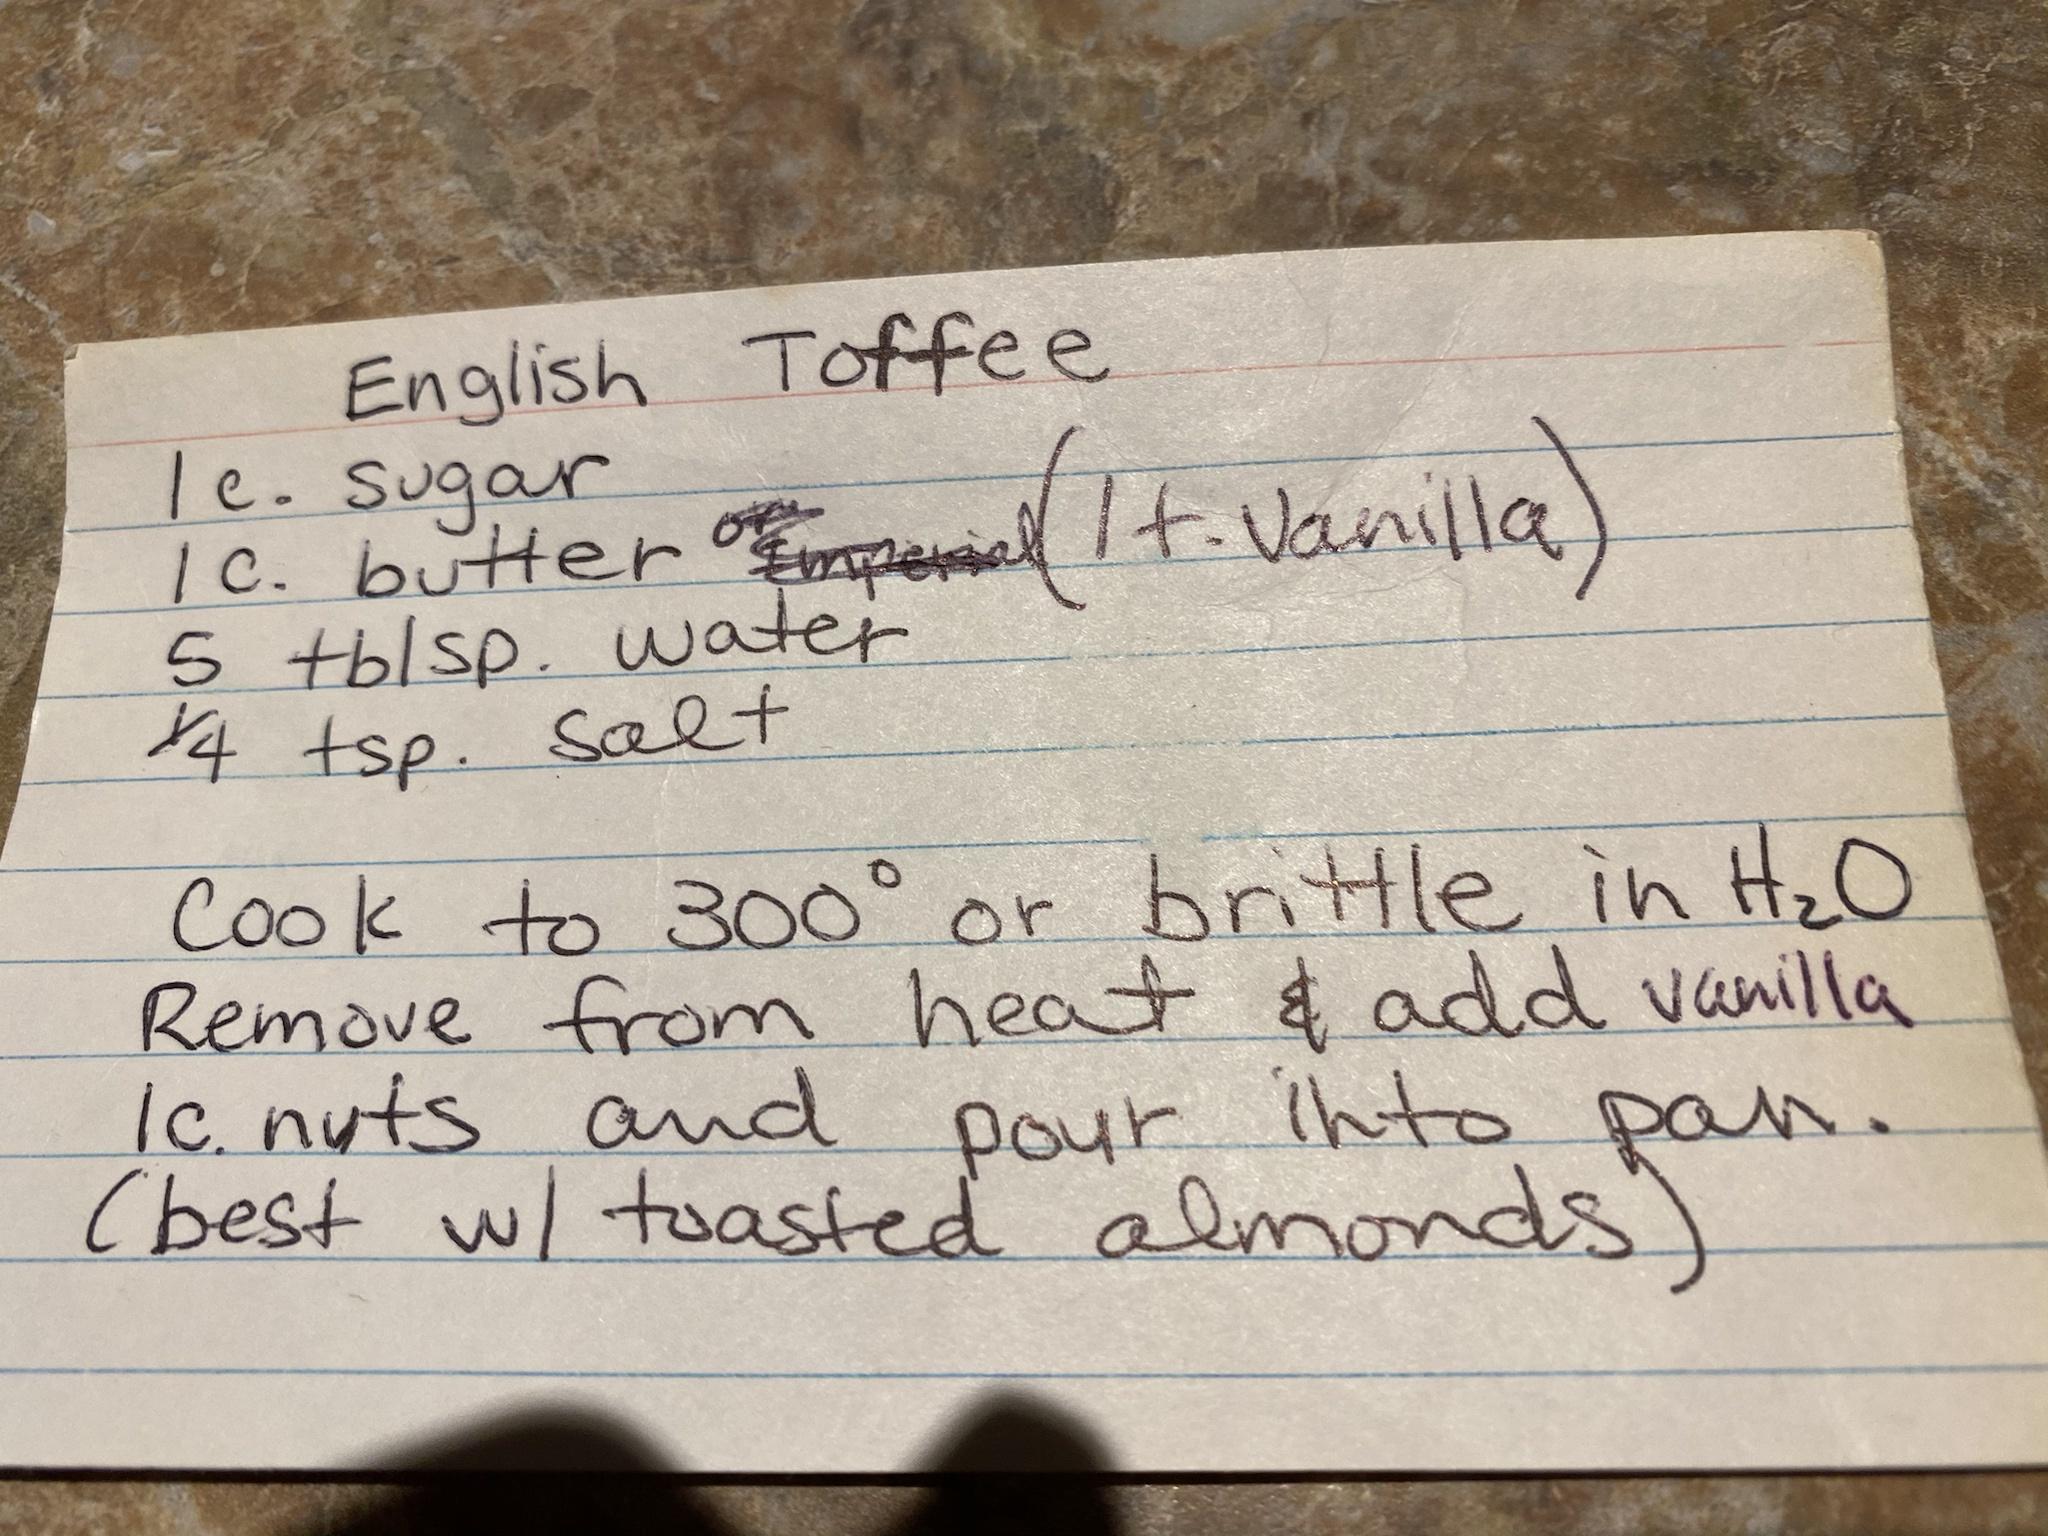 English Toffee
1 c. sugar
1 c. butter or Imperial (1 t. Vanilla)
5 tblsp. water
1/4 tsp. salt
Cook to 300° or brittle in H₂O
Remove from heat & add vanilla
1c. nuts and pour into pan.
(best w/ toasted almonds)